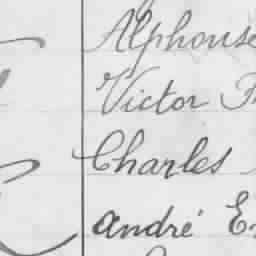 Alphonse
Victor
Charles
André